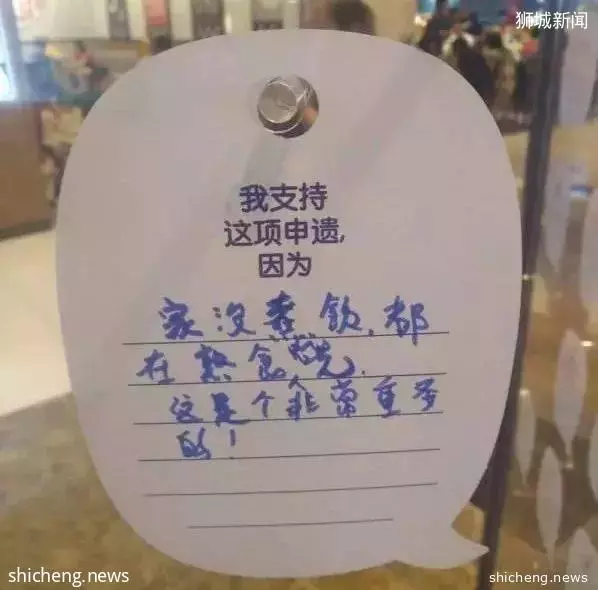 狮城新闻
我支持
这项申遗,
因为
家没煮饭,都
在熟食
这是个非常重要
的!
shicheng.news
shicheng.news